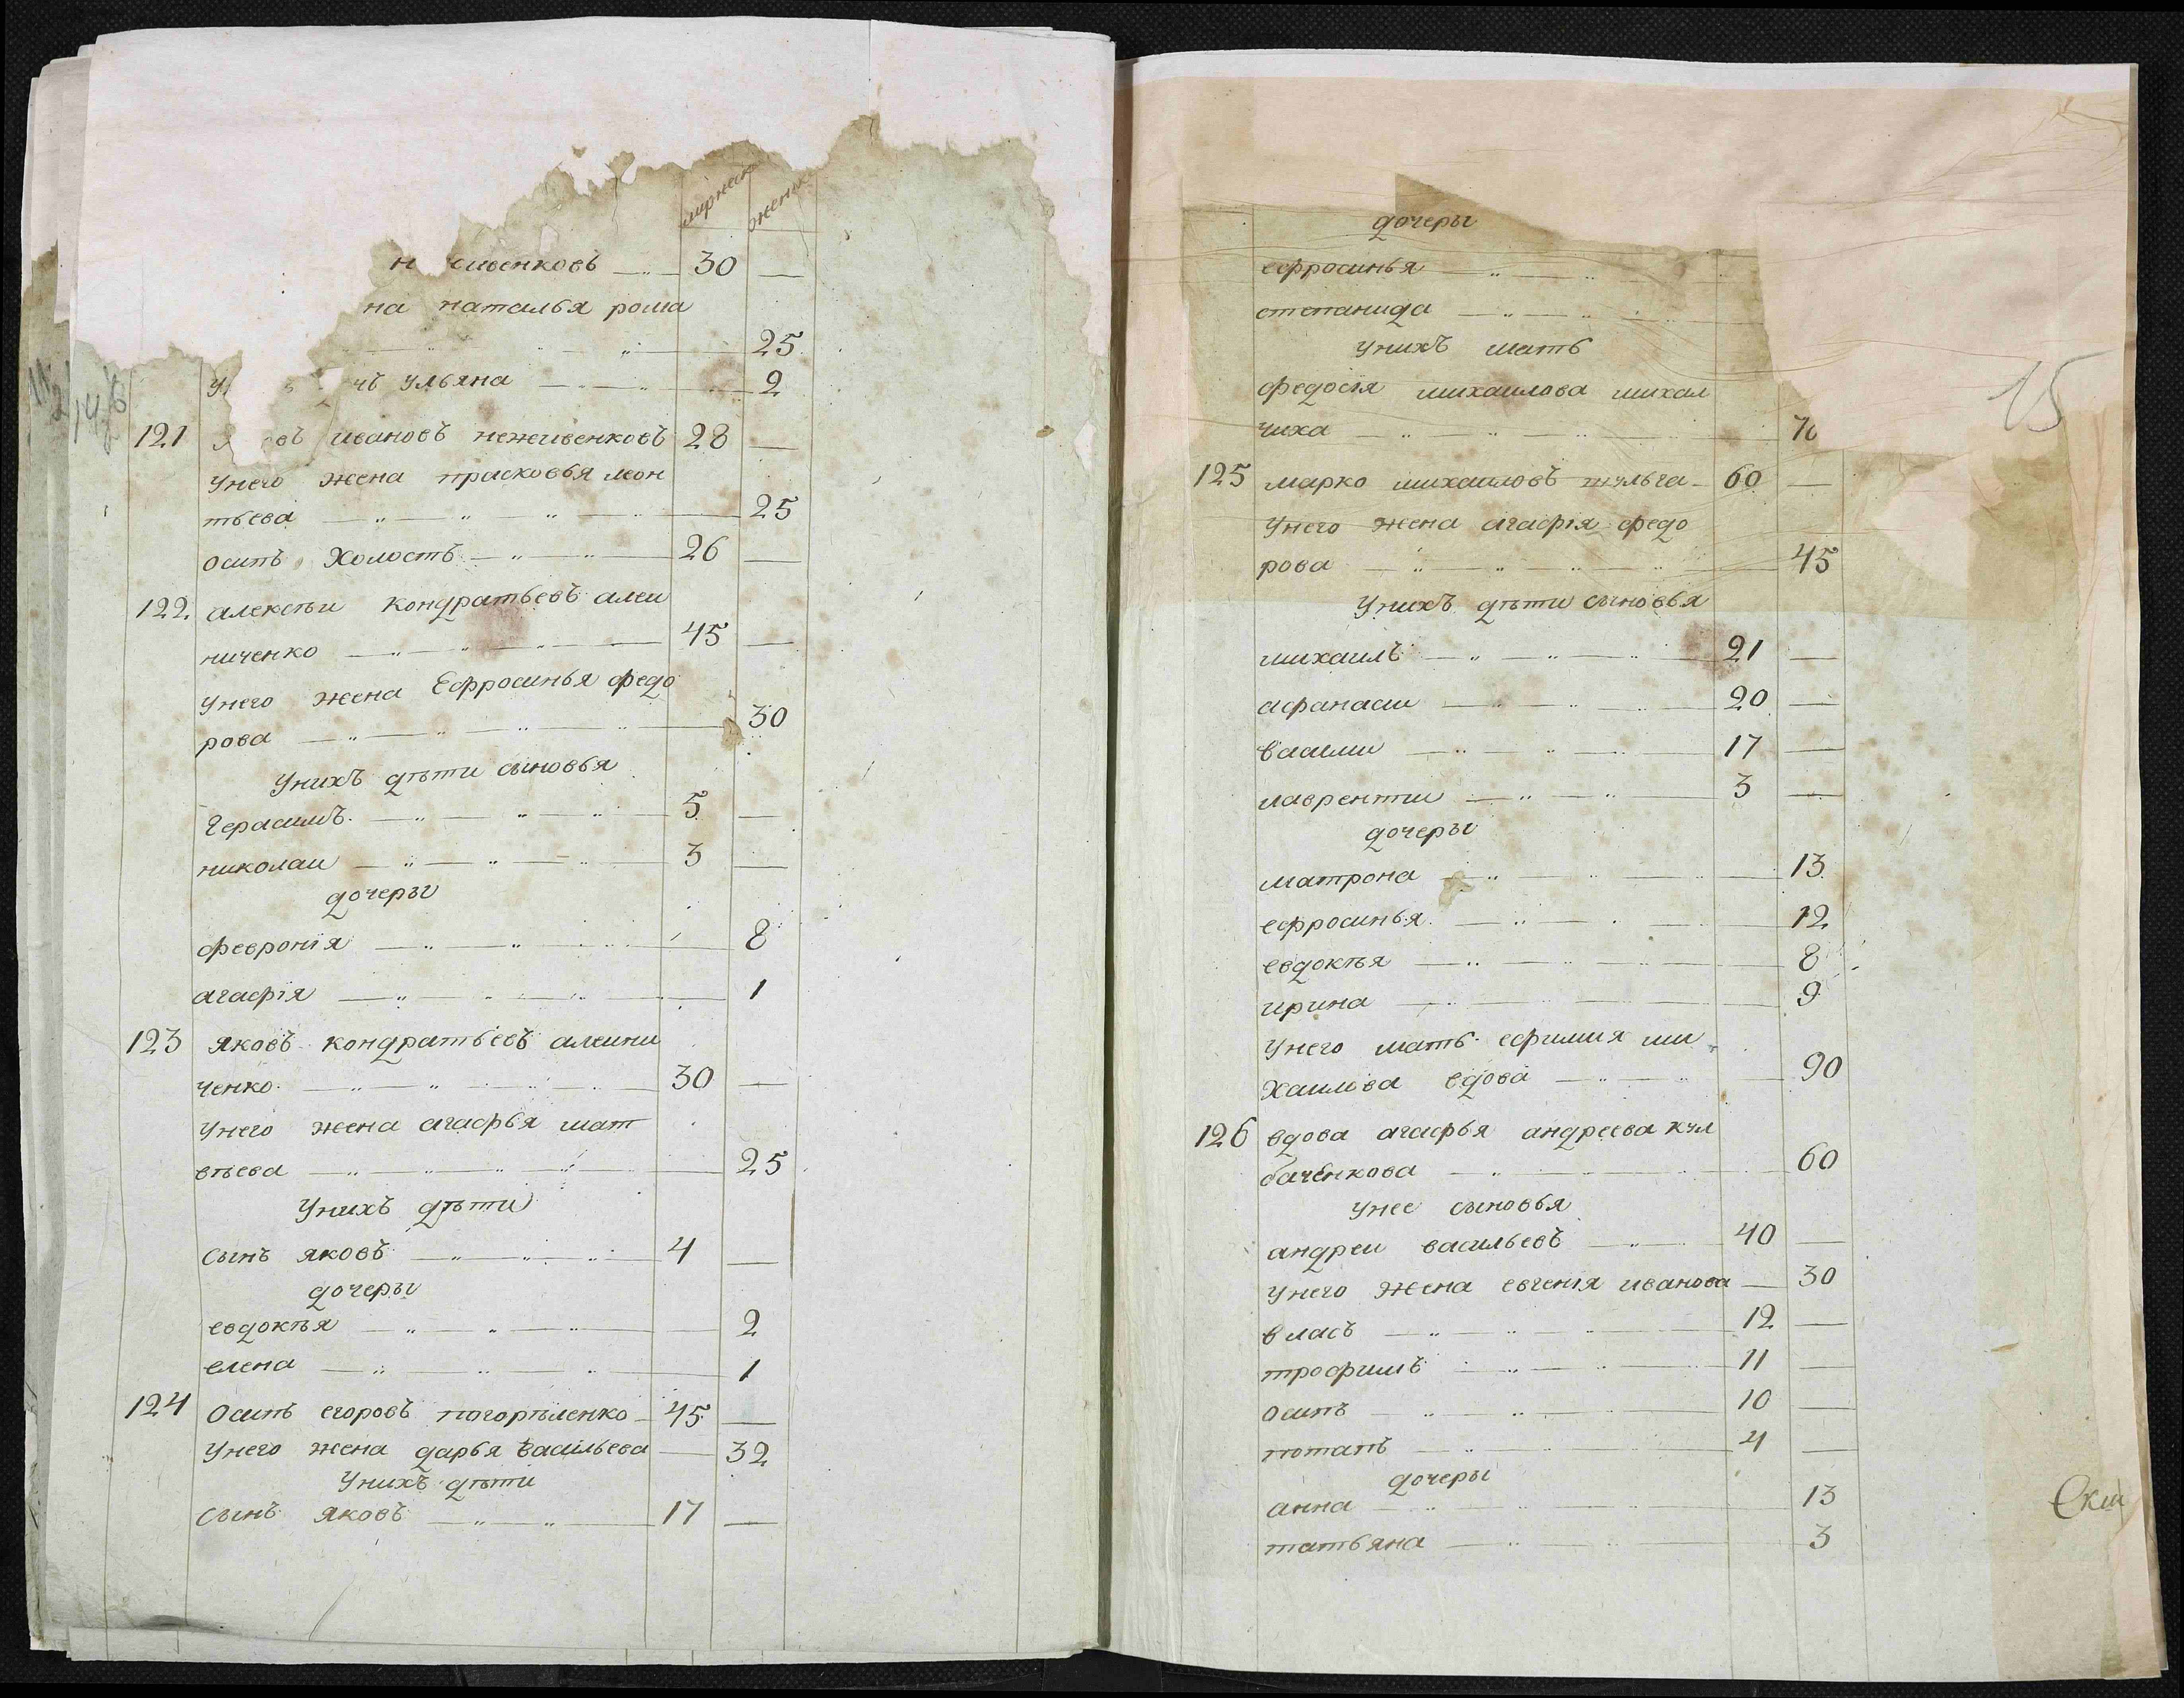 женск
енковъ 30 —
на наталья рома
25
ульяна 2
121 ивановъ неживенковъ 28 —
Унего жена прасковья леон
тьева 25
осипъ Холостъ 26 —
122. алексѣи кондратьевъ алеи
ниченко 45 —
Унего жена Ефросинья федо
рова 30
Унихъ дѣти сыновья
Герасимъ 5 —
николаи 3 —
дочеры
февронія 8
агафія 1
123 яковъ кондратьевъ алеини
ченко 30 —
Унего жена агафья мат
вѣева 25
Унихъ дѣти
сынъ яковъ 4 —
дочеры
евдокѣя 2
елена 1
124 Осипъ егоровъ погорѣленко 45 —
Унего жена дарья васильева — 32
Унихъ дѣти
сынъ яковъ 17 —
15
дочеры
ефросинья
степанида
Унихъ мать
федосія михаилова михал
чиха
125 марко михаиловъ шульга 60 —
Унего жена агафія федо
рова 45
Унихъ дѣти сыновья
михаилъ 21 —
афанасии 20 —
васили 17 —
лаврентии 3 —
дочеры
матрона 13
ефросинья 12
евдокѣя 8
ирина 9
Унего мать ефимия ми
хаилова вдова 90
126 вдова агафья андреева кул
баченкова 60
Унее сыновья
андреи васильевъ 40 —
Унего жена евгенія иванова — 30
власъ 12 —
трофимъ 11 —
осипъ 10 —
потапъ 4 —
дочеры
анна 13
татьяна 3